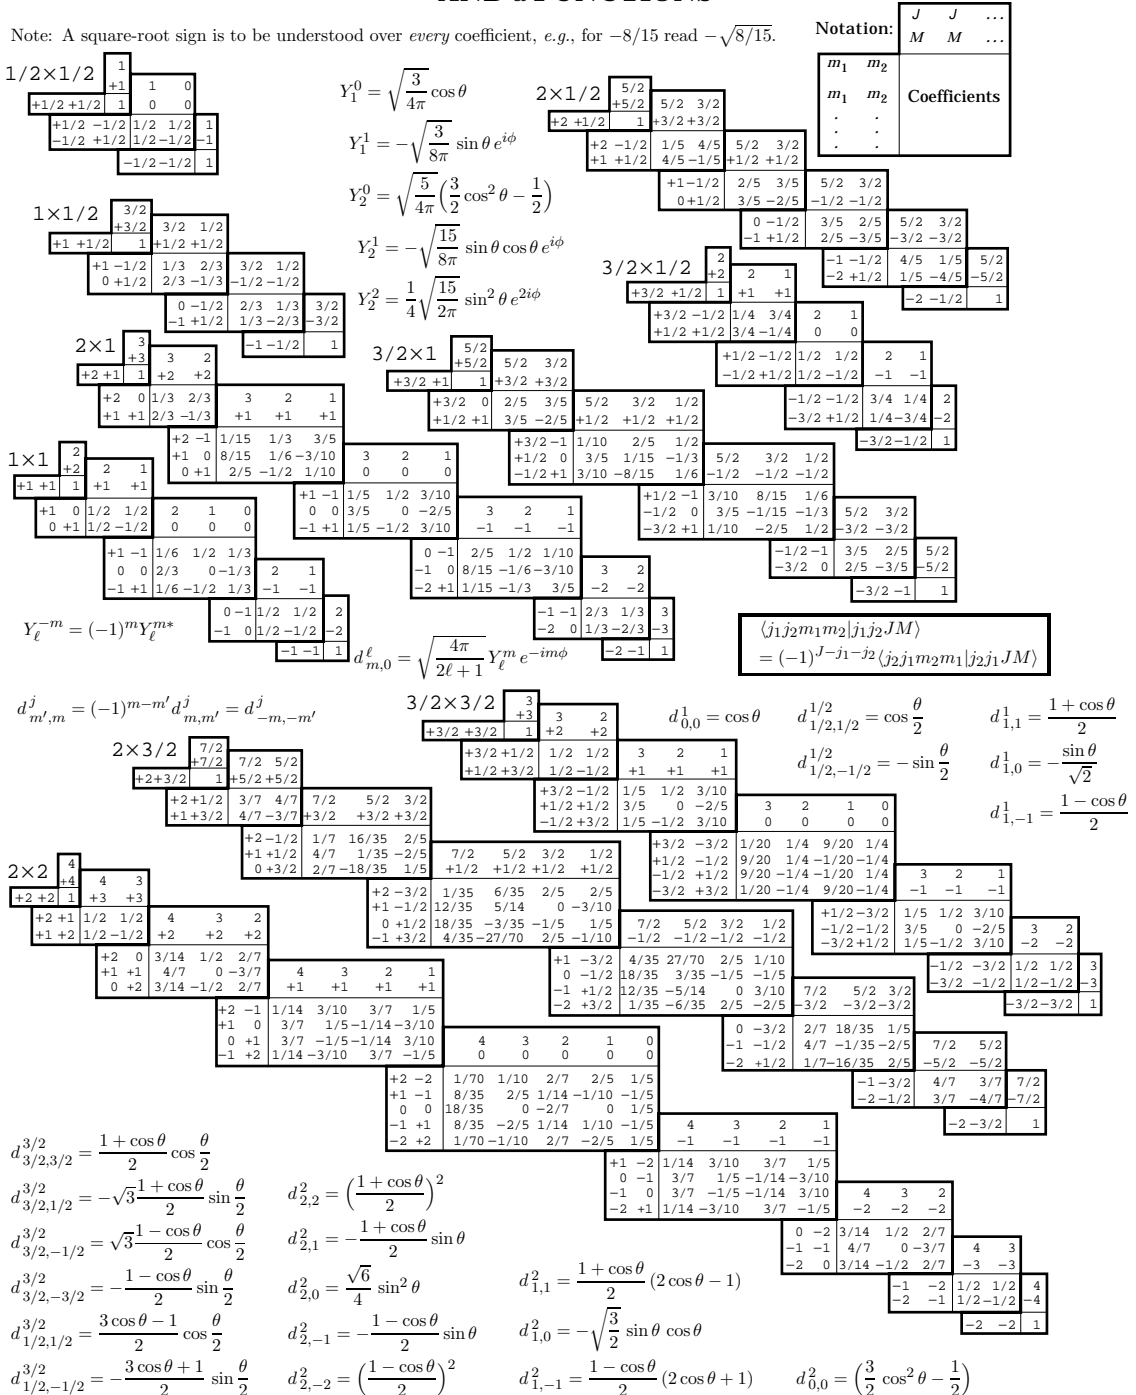 AND d FUNCTIONS
Note: A square-root sign is to be understood over every coefficient, e.g., for −8/15 read −√8/15.
Notation:
J J ...
M M ...
m₁ m₂
m₁ m₂ Coefficients
. .
. .
. .
1/2×1/2
1
+1 1 0
+1/2 +1/2 1 0 0
+1/2 −1/2 1/2 1/2 1
−1/2 +1/2 1/2 −1/2 −1
−1/2 −1/2 1
Y₁⁰ = √(3/4π) cos θ
Y₁¹ = −√(3/8π) sin θ e^{iϕ}
Y₂⁰ = √(5/4π) (3/2 cos² θ − 1/2)
Y₂¹ = −√(15/8π) sin θ cos θ e^{iϕ}
Y₂² = 1/4 √(15/2π) sin² θ e^{2iϕ}
2×1/2
5/2
+5/2 5/2 3/2
+2 +1/2 1 +3/2 +3/2
+2 −1/2 1/5 4/5 5/2 3/2
+1 +1/2 4/5 −1/5 +1/2 +1/2
+1 −1/2 2/5 3/5 5/2 3/2
0 +1/2 3/5 −2/5 −1/2 −1/2
0 −1/2 3/5 2/5 5/2 3/2
−1 +1/2 2/5 −3/5 −3/2 −3/2
−1 −1/2 4/5 1/5 5/2
−2 +1/2 1/5 −4/5 −5/2
−2 −1/2 1
1×1/2
3/2
+3/2 3/2 1/2
+1 +1/2 1 +1/2 +1/2
+1 −1/2 1/3 2/3 3/2 1/2
0 +1/2 2/3 −1/3 −1/2 −1/2
0 −1/2 2/3 1/3 3/2
−1 +1/2 1/3 −2/3 −3/2
−1 −1/2 1
3/2×1/2
2
+2 2 1
+3/2 +1/2 1 +1 +1
+3/2 −1/2 1/4 3/4 2 1
+1/2 +1/2 3/4 −1/4 0 0
+1/2 −1/2 1/2 1/2 2 1
−1/2 +1/2 1/2 −1/2 −1 −1
−1/2 −1/2 3/4 1/4 2
−3/2 +1/2 1/4 −3/4 −2
−3/2 −1/2 1
2×1
3
+3 3 2
+2 +1 1 +2 +2
+2 0 1/3 2/3 3 2 1
+1 +1 2/3 −1/3 +1 +1 +1
+2 −1 1/15 1/3 3/5
+1 0 8/15 1/6 −3/10 3 2 1
0 +1 2/5 −1/2 1/10 0 0 0
+1 −1 1/5 1/2 3/10
0 0 3/5 0 −2/5 3 2 1
−1 +1 1/5 −1/2 3/10 −1 −1 −1
0 −1 2/5 1/2 1/10
−1 0 8/15 −1/6 −3/10 3 2
−2 +1 1/15 −1/3 3/5 −2 −2
−1 −1 2/3 1/3 3
−2 0 1/3 −2/3 −3
−2 −1 1
3/2×1
5/2
+5/2 5/2 3/2
+3/2 +1 1 +3/2 +3/2
+3/2 0 2/5 3/5 5/2 3/2 1/2
+1/2 +1 3/5 −2/5 +1/2 +1/2 +1/2
+3/2 −1 1/10 2/5 1/2
+1/2 0 3/5 1/15 −1/3 5/2 3/2 1/2
−1/2 +1 3/10 −8/15 1/6 −1/2 −1/2 −1/2
+1/2 −1 3/10 8/15 1/6
−1/2 0 3/5 −1/15 −1/3 5/2 3/2
−3/2 +1 1/10 −2/5 1/2 −3/2 −3/2
−1/2 −1 3/5 2/5 5/2
−3/2 0 2/5 −3/5 −5/2
−3/2 −1 1
1×1
2
+2 2 1
+1 +1 1 +1 +1
+1 0 1/2 1/2 2 1 0
0 +1 1/2 −1/2 0 0 0
+1 −1 1/6 1/2 1/3
0 0 2/3 0 −1/3 2 1
−1 +1 1/6 −1/2 1/3 −1 −1
0 −1 1/2 1/2 2
−1 0 1/2 −1/2 −2
−1 −1 1
Y_ℓ^{−m} = (−1)^m Y_ℓ^{m∗}
d^ℓ_{m,0} = √(4π/(2ℓ+1)) Y_ℓ^m e^{−imϕ}
⟨j₁j₂m₁m₂|j₁j₂JM⟩
= (−1)^{J−j₁−j₂}⟨j₂j₁m₂m₁|j₂j₁JM⟩
d^j_{m′,m} = (−1)^{m−m′} d^j_{m,m′} = d^j_{−m,−m′}
3/2×3/2
3
+3 3 2
+3/2 +3/2 1 +2 +2
+3/2 +1/2 1/2 1/2 3 2 1
+1/2 +3/2 1/2 −1/2 +1 +1 +1
+3/2 −1/2 1/5 1/2 3/10
+1/2 +1/2 3/5 0 −2/5 3 2 1 0
−1/2 +3/2 1/5 −1/2 3/10 0 0 0 0
+3/2 −3/2 1/20 1/4 9/20 1/4
+1/2 −1/2 9/20 1/4 −1/20 −1/4
−1/2 +1/2 9/20 −1/4 −1/20 1/4 3 2 1
−3/2 +3/2 1/20 −1/4 9/20 −1/4 −1 −1 −1
+1/2 −3/2 1/5 1/2 3/10
−1/2 −1/2 3/5 0 −2/5 3 2
−3/2 +1/2 1/5 −1/2 3/10 −2 −2
−1/2 −3/2 1/2 1/2 3
−3/2 −1/2 1/2 −1/2 −3
−3/2 −3/2 1
d^1_{0,0} = cos θ
d^{1/2}_{1/2,1/2} = cos θ/2
d^{1/2}_{1/2,−1/2} = −sin θ/2
d^1_{1,1} = (1+cos θ)/2
d^1_{1,0} = −sin θ/√2
d^1_{1,−1} = (1−cos θ)/2
2×3/2
7/2
+7/2 7/2 5/2
+2 +3/2 1 +5/2 +5/2
+2 +1/2 3/7 4/7 7/2 5/2 3/2
+1 +3/2 4/7 −3/7 +3/2 +3/2 +3/2
+2 −1/2 1/7 16/35 2/5
+1 +1/2 4/7 1/35 −2/5 7/2 5/2 3/2 1/2
0 +3/2 2/7 −18/35 1/5 +1/2 +1/2 +1/2 +1/2
+2 −3/2 1/35 6/35 2/5 2/5
+1 −1/2 12/35 5/14 0 −3/10
0 +1/2 18/35 −3/35 −1/5 1/5 7/2 5/2 3/2 1/2
−1 +3/2 4/35 −27/70 2/5 −1/10 −1/2 −1/2 −1/2 −1/2
+1 −3/2 4/35 27/70 2/5 1/10
0 −1/2 18/35 3/35 −1/5 −1/5
−1 +1/2 12/35 −5/14 0 3/10 7/2 5/2 3/2
−2 +3/2 1/35 −6/35 2/5 −2/5 −3/2 −3/2 −3/2
0 −3/2 2/7 18/35 1/5
−1 −1/2 4/7 −1/35 −2/5 7/2 5/2
−2 +1/2 1/7 −16/35 2/5 −5/2 −5/2
−1 −3/2 4/7 3/7 7/2
−2 −1/2 3/7 −4/7 −7/2
−2 −3/2 1
2×2
4
+4 4 3
+2 +2 1 +3 +3
+2 +1 1/2 1/2 4 3 2
+1 +2 1/2 −1/2 +2 +2 +2
+2 0 3/14 1/2 2/7
+1 +1 4/7 0 −3/7 4 3 2 1
0 +2 3/14 −1/2 2/7 +1 +1 +1 +1
+2 −1 1/14 3/10 3/7 1/5
+1 0 3/7 1/5 −1/14 −3/10
0 +1 3/7 −1/5 −1/14 3/10 4 3 2 1 0
−1 +2 1/14 −3/10 3/7 −1/5 0 0 0 0 0
+2 −2 1/70 1/10 2/7 2/5 1/5
+1 −1 8/35 2/5 1/14 −1/10 −1/5
0 0 18/35 0 −2/7 0 1/5
−1 +1 8/35 −2/5 1/14 1/10 −1/5 4 3 2 1
−2 +2 1/70 −1/10 2/7 −2/5 1/5 −1 −1 −1 −1
+1 −2 1/14 3/10 3/7 1/5
0 −1 3/7 1/5 −1/14 −3/10
−1 0 3/7 −1/5 −1/14 3/10 4 3 2
−2 +1 1/14 −3/10 3/7 −1/5 −2 −2 −2
0 −2 3/14 1/2 2/7
−1 −1 4/7 0 −3/7 4 3
−2 0 3/14 −1/2 2/7 −3 −3
−1 −2 1/2 1/2 4
−2 −1 1/2 −1/2 −4
−2 −2 1
d^{3/2}_{3/2,3/2} = (1+cos θ)/2 cos θ/2
d^{3/2}_{3/2,1/2} = −√3 (1+cos θ)/2 sin θ/2
d^{3/2}_{3/2,−1/2} = √3 (1−cos θ)/2 cos θ/2
d^{3/2}_{3/2,−3/2} = −(1−cos θ)/2 sin θ/2
d^{3/2}_{1/2,1/2} = (3 cos θ−1)/2 cos θ/2
d^{3/2}_{1/2,−1/2} = −(3 cos θ+1)/2 sin θ/2
d^2_{2,2} = ((1+cos θ)/2)²
d^2_{2,1} = −(1+cos θ)/2 sin θ
d^2_{2,0} = √6/4 sin² θ
d^2_{2,−1} = −(1−cos θ)/2 sin θ
d^2_{2,−2} = ((1−cos θ)/2)²
d^2_{1,1} = (1+cos θ)/2 (2 cos θ−1)
d^2_{1,0} = −√(3/2) sin θ cos θ
d^2_{1,−1} = (1−cos θ)/2 (2 cos θ+1)
d^2_{0,0} = (3/2 cos² θ − 1/2)